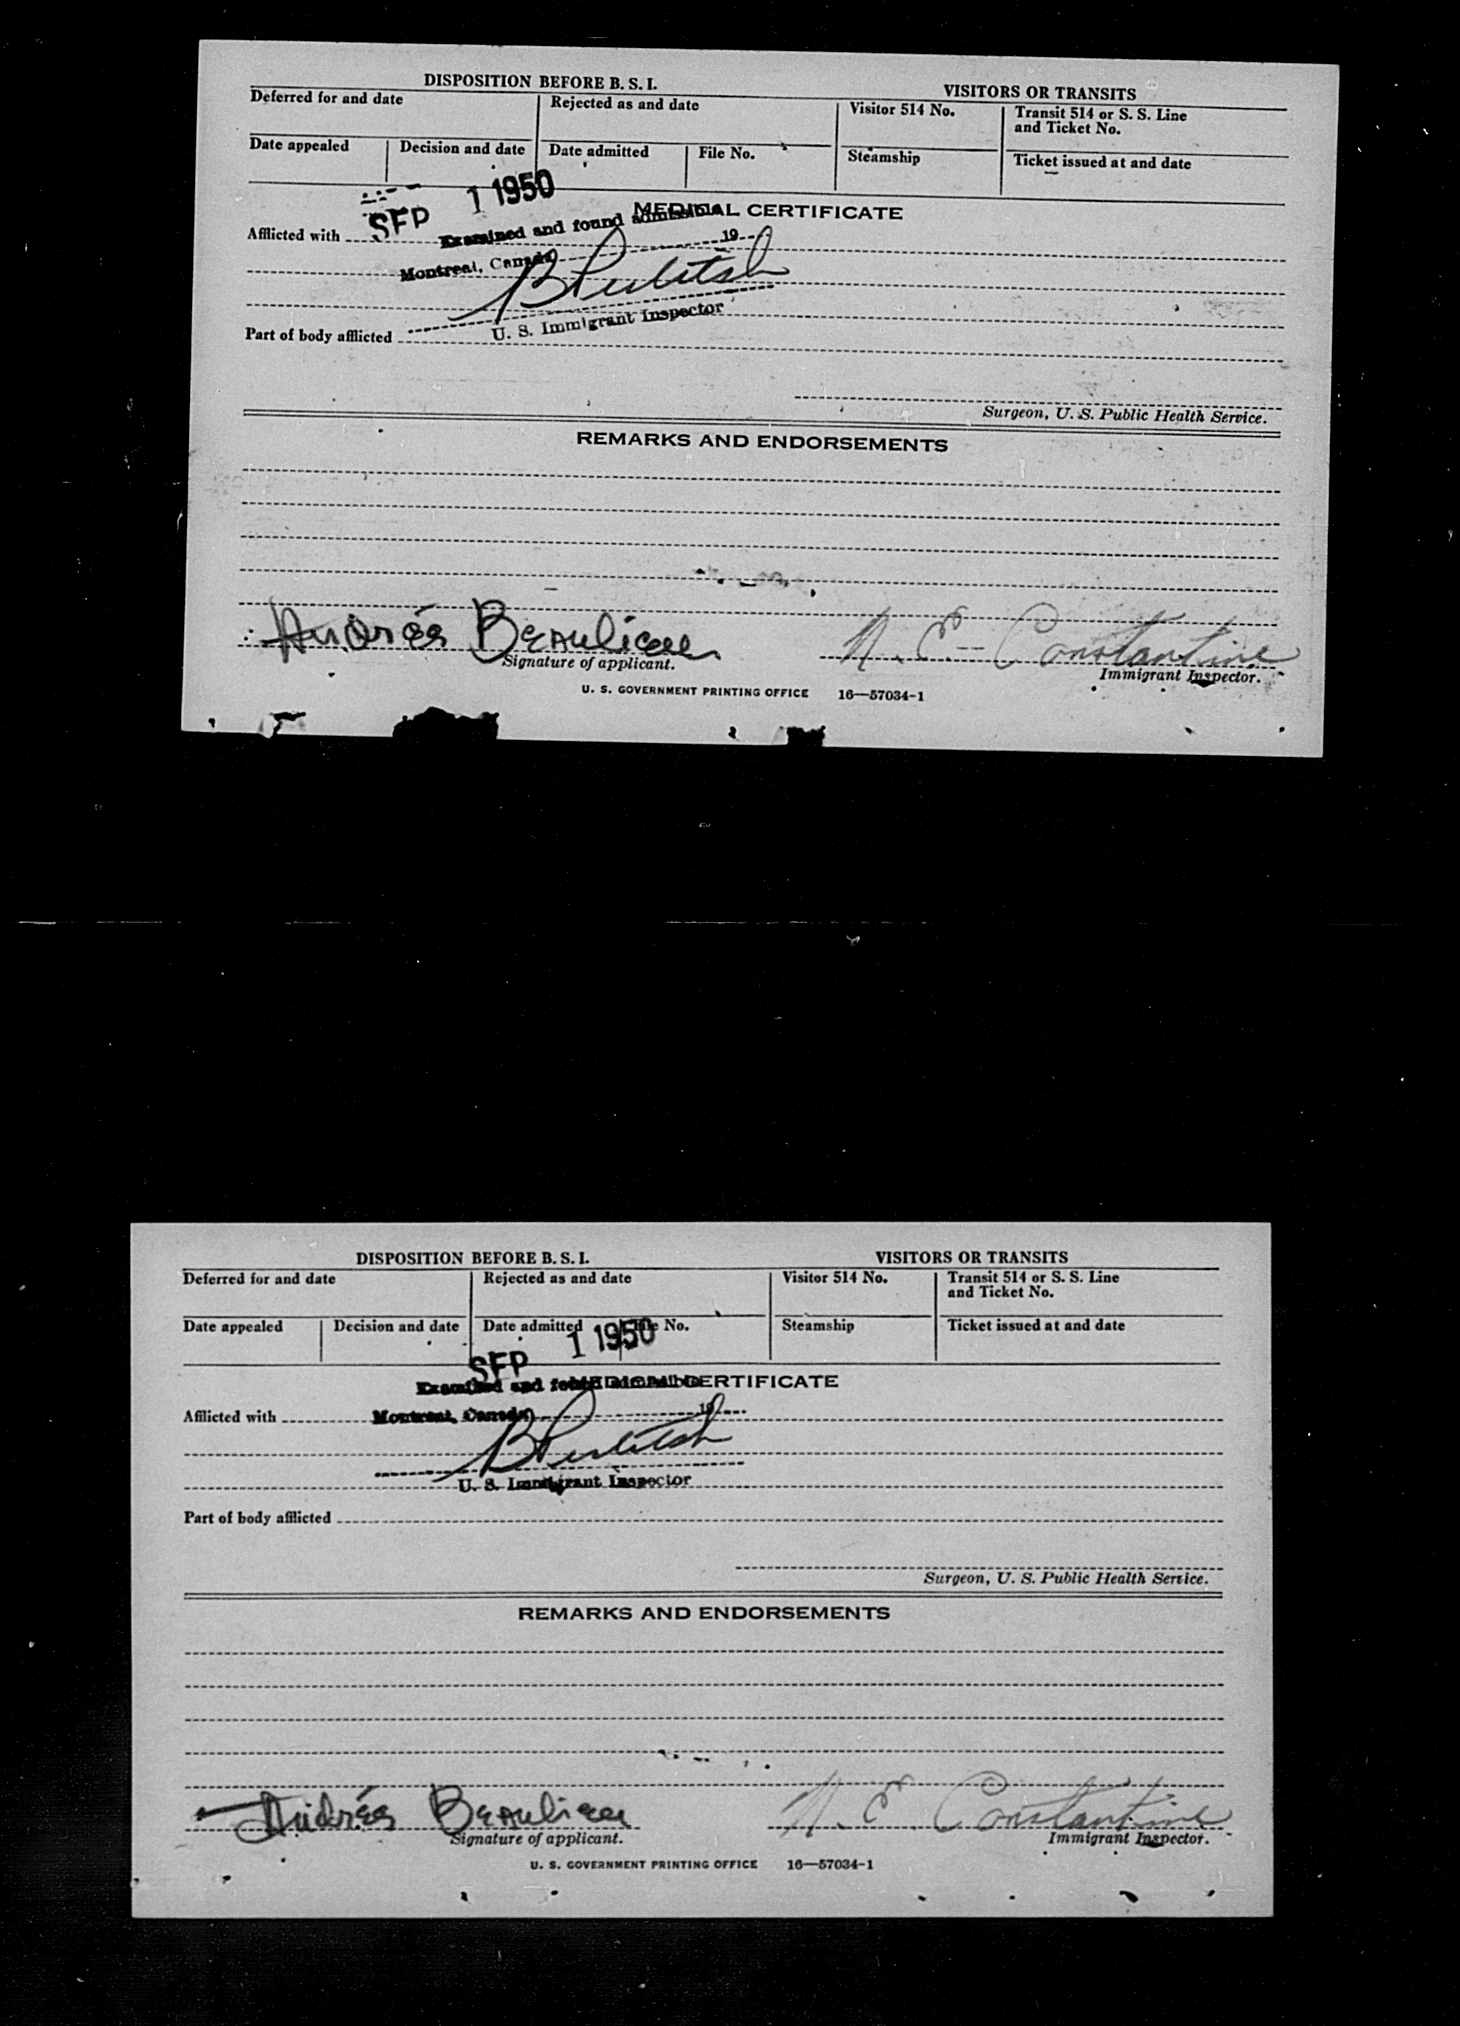 DISPOSITION BEFORE B. S. I.
VISITORS OR TRANSITS
Deferred for and date
Rejected as and date
Visitor 514 No.
Transit 514 or S. S. Line
and Ticket No.
Date appealed
Decision and date
Date admitted
File No.
Steamship
Ticket issued at and date
SEP 1 1950
MEDICAL CERTIFICATE
Examined and found admissible
Afflicted with
19
Montreal, Canada
U. S. Immigrant Inspector
Part of body afflicted
Surgeon, U. S. Public Health Service.
REMARKS AND ENDORSEMENTS
Andrée Beaulieu
N. E. Constantine
Signature of applicant.
Immigrant Inspector.
U. S. GOVERNMENT PRINTING OFFICE 16—57034-1
DISPOSITION BEFORE B. S. I.
VISITORS OR TRANSITS
Deferred for and date
Rejected as and date
Visitor 514 No.
Transit 514 or S. S. Line
and Ticket No.
Date appealed
Decision and date
Date admitted
File No.
Steamship
Ticket issued at and date
SEP 1 1950
MEDICAL CERTIFICATE
Examined and found admissible
Afflicted with
Montreal, Canada
19
U. S. Immigrant Inspector
Part of body afflicted
Surgeon, U. S. Public Health Service.
REMARKS AND ENDORSEMENTS
Andrée Beaulieu
N. E. Constantine
Signature of applicant.
Immigrant Inspector.
U. S. GOVERNMENT PRINTING OFFICE 16—57034-1